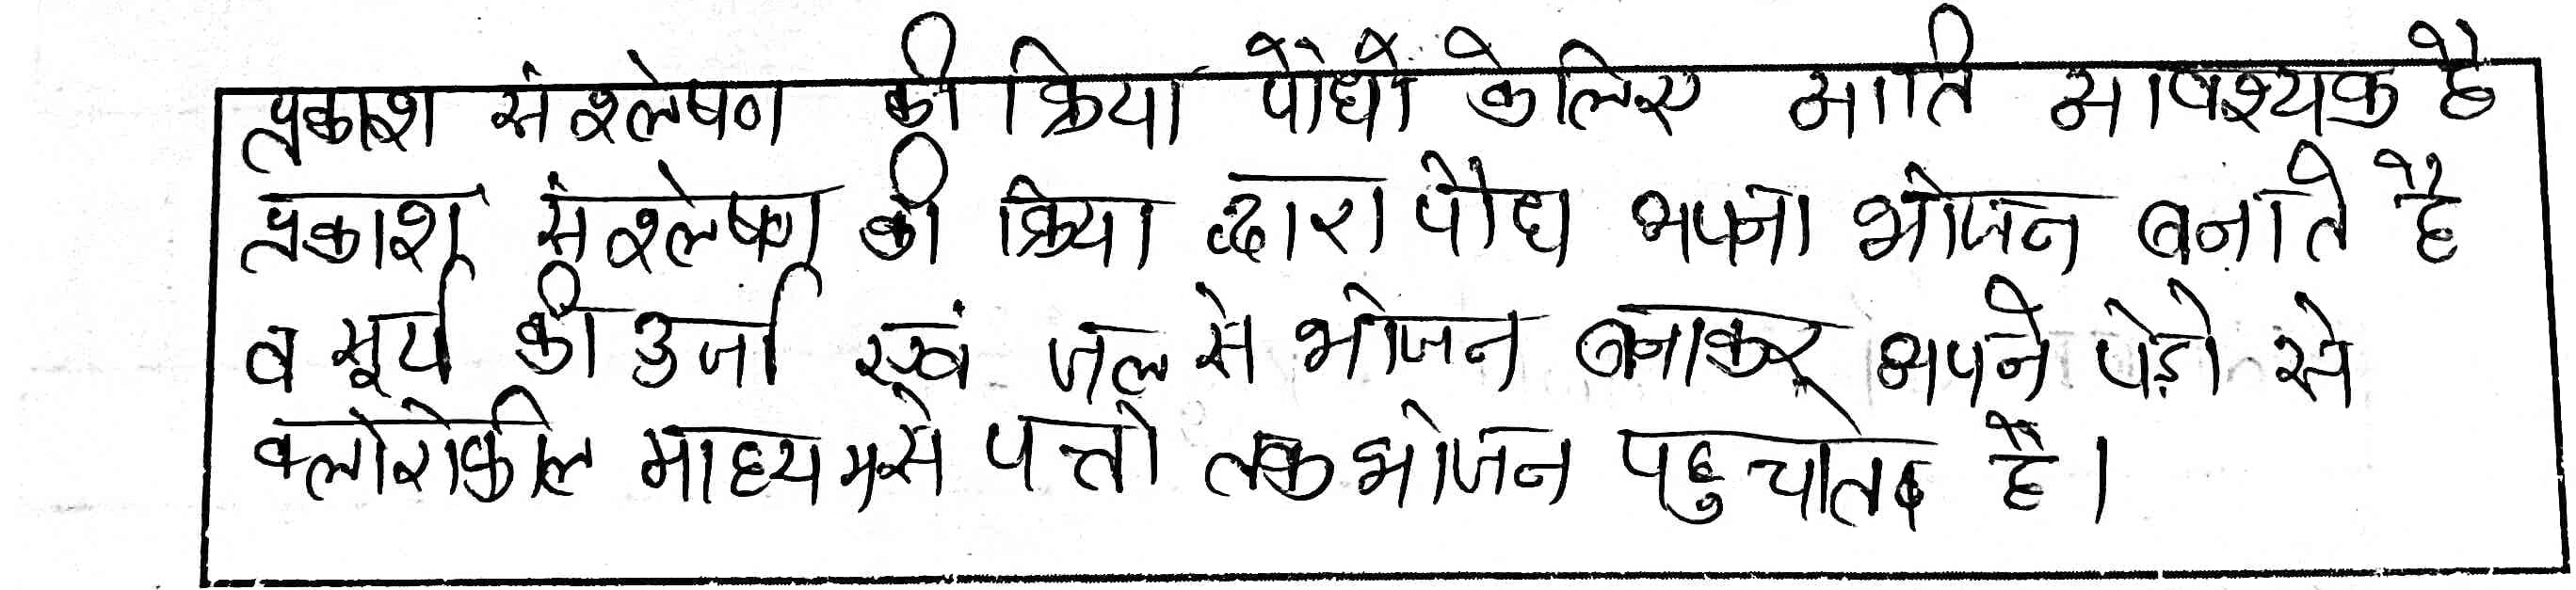 प्रकाश संश्लेषण की क्रिया पौधों के लिए अति आवश्यक है
प्रकाश संश्लेषण की क्रिया द्वारा पौध अपना भोजन बनाते है
व सूर्य की उर्जा एवं जल से भोजन बनाकर अपने पेड़ो से
क्लोरोफील माध्यम से पत्तो तक भोजन पहुचाते है।